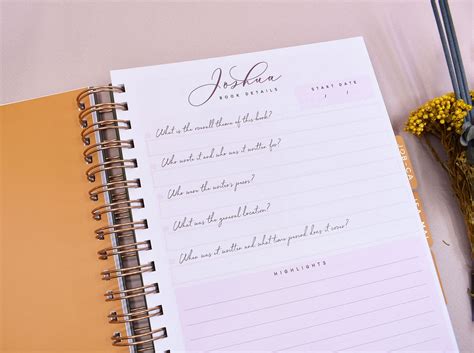 Joshua
BOOK DETAILS
START DATE
/ /
What is the overall theme of this book?
Who wrote it and who was it written for?
Who were the writer's peers?
What was the general location?
When was it written and what time period does it cover?
HIGHLIGHTS